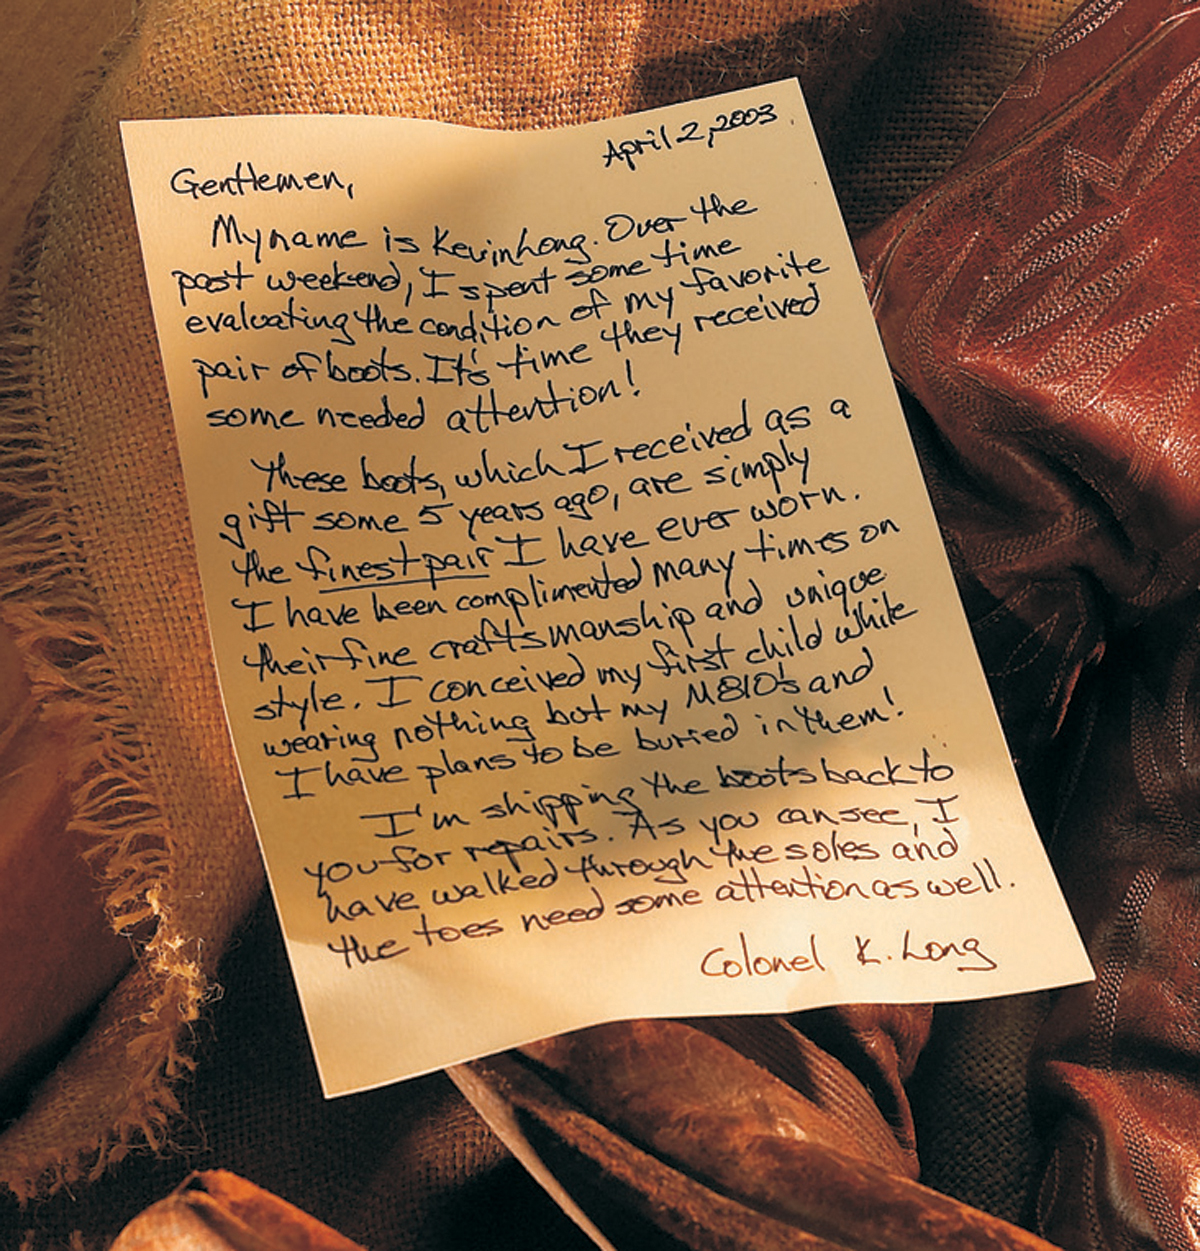 April 2, 2003.
Gentlemen,
My name is Kevin Long. Over the
past weekend, I spent some time
evaluating the condition of my favorite
pair of boots. It's time they received
some needed attention!
These boots, which I received as a
gift some 5 years ago, are simply
the finest pair I have ever worn.
I have been complimented many times on
their fine craftsmanship and unique
style. I conceived my first child while
wearing nothing but my M810's and
I have plans to be buried in them!
I'm shipping the boots back to
you for repairs. As you can see, I
have walked through the soles and
the toes need some attention as well.
Colonel K. Long